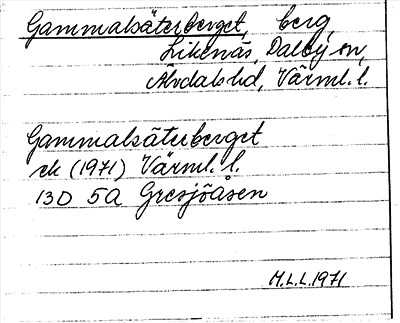 Gammalsäterberget, berg,
Likenäs, Dalby sn,
Älvdals hd, Värml. l.
Gammalsäterberget
ek (1971) Värml. l.
13D 5a Gresjöåsen
M.L.L. 1971